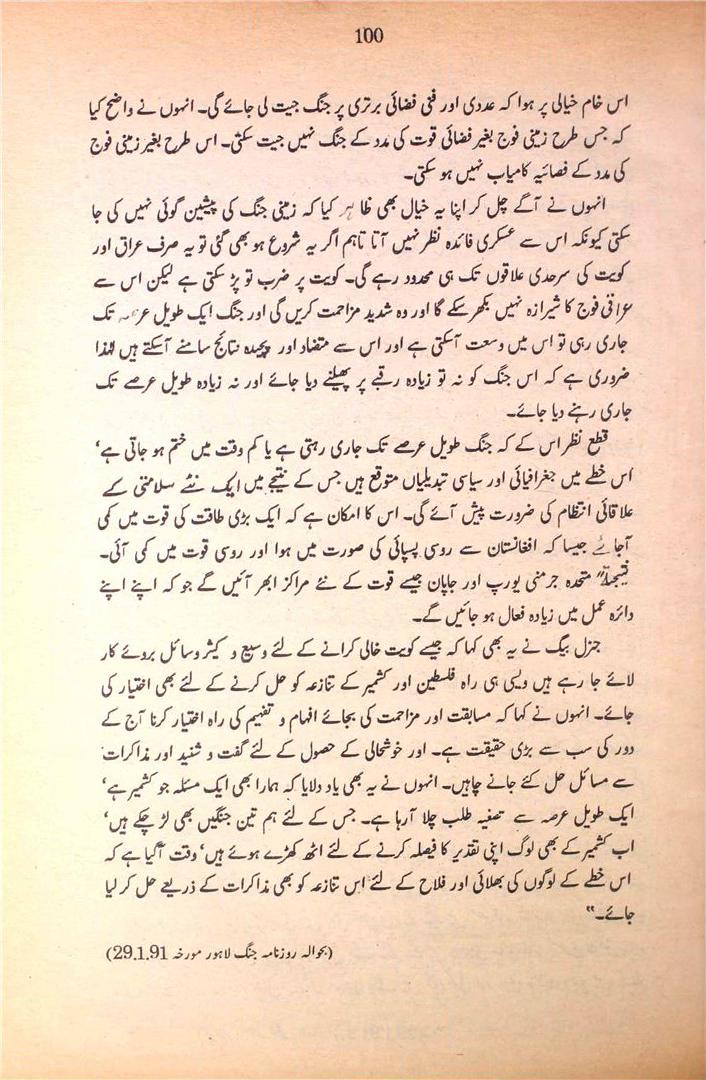 100
اس خام خیالی پر ہوا کہ عددی اور فنی فضائی برتری پر جنگ جیت لی جائے گی۔ انہوں نے واضح کیا
کہ جس طرح زمینی فوج بغیر فضائی قوت کی مدد کے جنگ نہیں جیت سکتی۔ اس طرح بغیر زمینی فوج
کی مدد کے فضائیہ کامیاب نہیں ہو سکتی۔
انہوں نے آگے چل کر اپنا یہ خیال بھی ظاہر کیا کہ زمینی جنگ کی پیشین گوئی نہیں کی جا
سکتی کیونکہ اس سے عسکری فائدہ نظر نہیں آتا تاہم اگر یہ شروع ہو بھی گئی تو یہ صرف عراق اور
کویت کی سرحدی علاقوں تک ہی محدود رہے گی۔ کویت پر ضرب تو پڑ سکتی ہے لیکن اس سے
عراقی فوج کا شیرازہ نہیں بکھر سکے گا اور وہ شدید مزاحمت کریں گی اور جنگ ایک طویل عرصہ تک
جاری رہی تو اس میں وسعت آسکتی ہے اور اس سے متضاد اور پیچیدہ نتائج سامنے آسکتے ہیں لہٰذا
ضروری ہے کہ اس جنگ کو نہ تو زیادہ رقبے پر پھیلنے دیا جائے اور نہ زیادہ طویل عرصے تک
جاری رہنے دیا جائے۔
قطع نظر اس کے کہ جنگ طویل عرصے تک جاری رہتی ہے یا کم وقت میں ختم ہو جاتی ہے‘
اس خطے میں جغرافیائی اور سیاسی تبدیلیاں متوقع ہیں جس کے نتیجے میں ایک نئے سلامتی کے
علاقائی انتظام کی ضرورت پیش آئے گی۔ اس کا امکان ہے کہ ایک بڑی طاقت کی قوت میں کمی
آجائے جیسا کہ افغانستان سے روسی پسپائی کی صورت میں ہوا اور روسی قوت میں کمی آئی۔
نتیجتہً متحدہ جرمنی یورپ اور جاپان جیسے قوت کے نئے مراکز ابھر آئیں گے جو کہ اپنے اپنے
دائرہ عمل میں زیادہ فعال ہو جائیں گے۔
جنرل بیگ نے یہ بھی کہا کہ جیسے کویت خالی کرانے کے لئے وسیع و کثیر وسائل بروئے کار
لائے جا رہے ہیں ویسی ہی راہ فلسطین اور کشمیر کے تنازعہ کو حل کرنے کے لئے بھی اختیار کی
جائے۔ انہوں نے کہا کہ مسابقت اور مزاحمت کی بجائے افہام و تفہیم کی راہ اختیار کرنا آج کے
دور کی سب سے بڑی حقیقت ہے۔ اور خوشحالی کے حصول کے لئے گفت و شنید اور مذاکرات
سے مسائل حل کئے جانے چاہیں۔ انہوں نے یہ بھی یاد دلایا کہ ہمارا بھی ایک مسئلہ جو کشمیر ہے‘
ایک طویل عرصہ سے تصفیہ طلب چلا آرہا ہے۔ جس کے لئے ہم تین جنگیں بھی لڑ چکے ہیں‘
اب کشمیر کے بھی لوگ اپنی تقدیر کا فیصلہ کرنے کے لئے اٹھ کھڑے ہوئے ہیں‘ وقت آگیا ہے کہ
اس خطے کے لوگوں کی بھلائی اور فلاح کے لئے اس تنازعہ کو بھی مذاکرات کے ذریعے حل کر لیا
جائے۔“
(بحوالہ روزنامہ جنگ لاہور مورخہ 29.1.91)